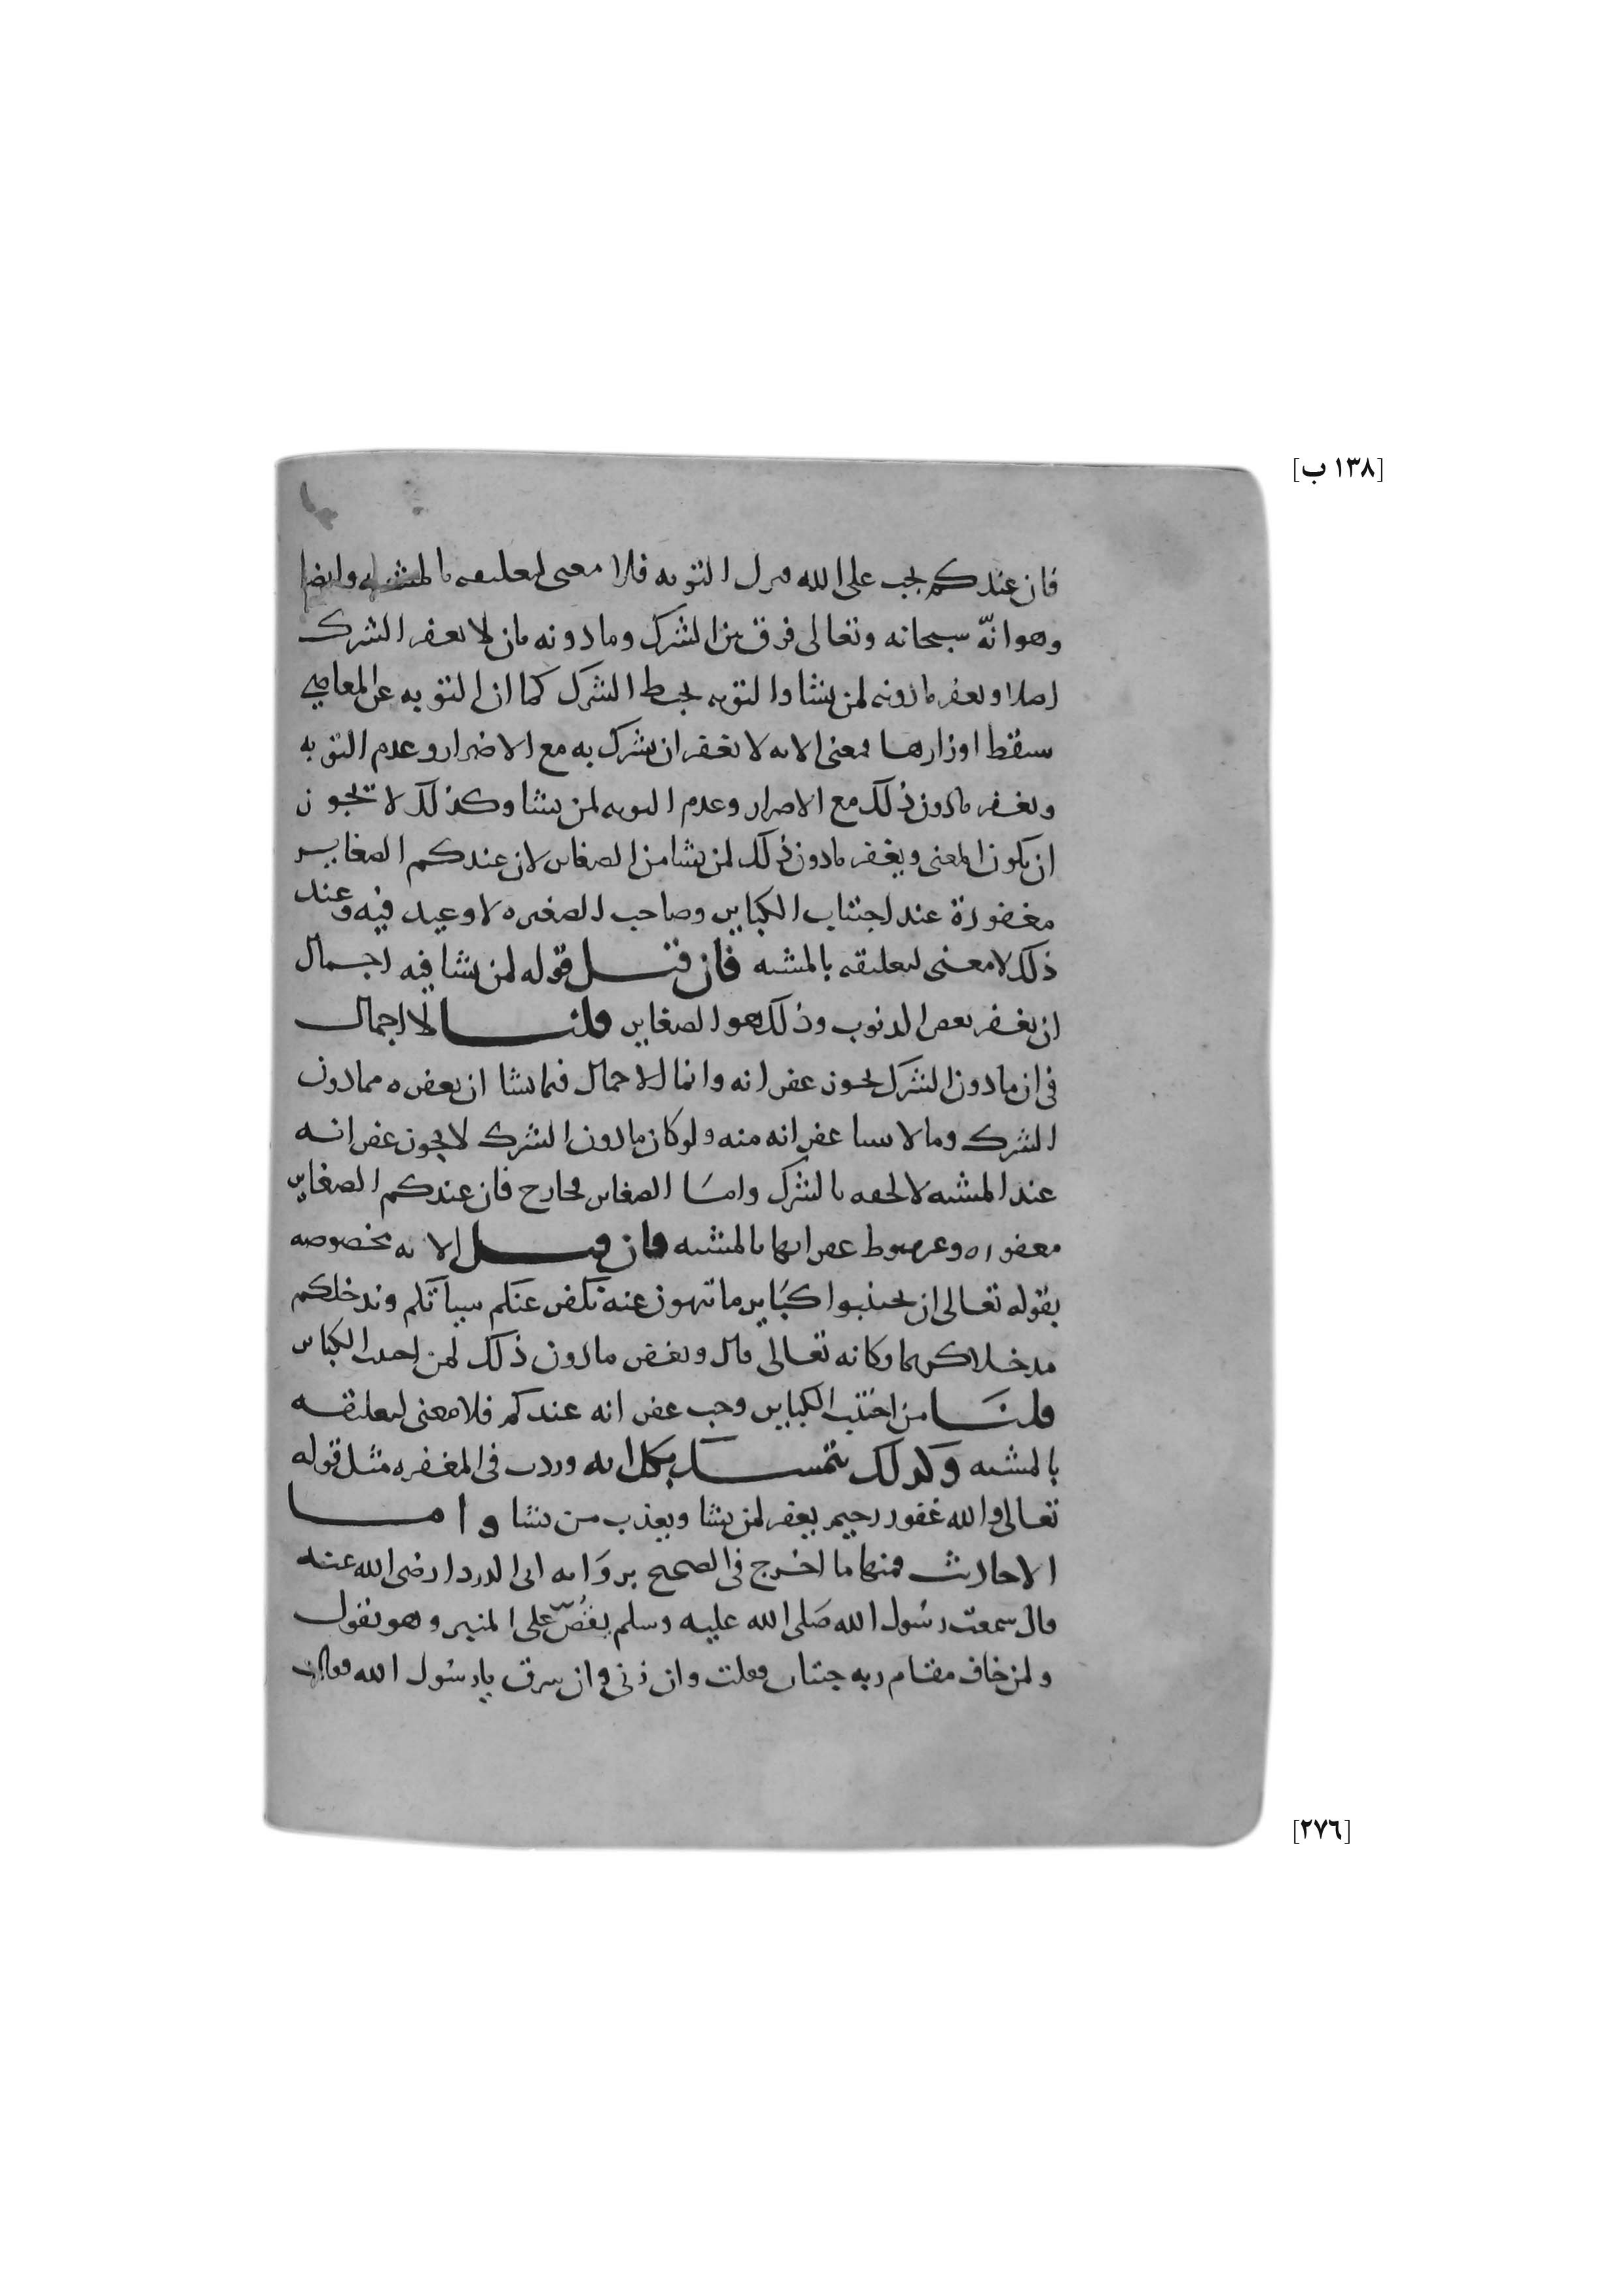 [١٣٨ ب]
فان عندكم يجب على الله قبول التوبه فلا معنى لتعليقه بالمشيه وايضا
وهو انّه سبحانه وتعالى فرق بين الشرك وما دونه بان لا يغفر الشرك
اصلا ويغفر مادونه لمن يشا والتوبه تحبط الشرك كما ان التوبه عن المعاصي
تسقط اوزارها فمعنى الايه لا يغفر ان يشرك به مع الاصرار وعدم التوبه
ويغفر مادون ذلك مع الاصرار وعدم التوبه لمن يشا وكذلك لا يجوز
ان يكون المعنى ويغفر مادون ذلك لمن يشا من الصغاير لان عندكم الصغاير
مغفورة عند اجتناب الكباير وصاحب الصغيره لا وعيد فيه وعند
ذلك لا معنى لتعليقه بالمشيه فان قيل قوله لمن يشا فيه اجمال
ان يغفر بعض الذنوب وذلك هو الصغاير قلنا لا اجمال
في ان مادون الشرك يجوز غفرانه وانما الاجمال فيما يشا ان يغفره مما دون
الشرك وما لا يشا غفرانه منه ولو كان مادون الشرك لا يجوز غفرانه
عند المشيه لالحقه بالشرك وامّا الصغاير فخارج فان عندكم الصغاير
مغفوره وغير منوط غفرانها بالمشيه فان قيل الايه مخصوصه
بقوله تعالى ان تجتنبوا كبَاير ما تنهون عنه نكفر عنكم سيآتكم وندخلكم
مدخلا كريما وكانه تعالى قال ويغفر مادون ذلك لمن اجتنب الكباير
قلنَا من اجتنب الكباير وجب غفرانه عندكم فلا معنى لتعليقه
بالمشيه وَكذلك يتمسّك بكل ايه وردت في المغفره مثل قوله
تعالى والله غفور رحيم يغفر لمن يشا ويعذب من يشا واما
الاحاديث فمنها ما اخرج في الصحيح بروَايه ابي الدردا رضي الله عنه
قال سمعت رسُول الله صَلى الله عليه وسلم يقُصّ على المنبر وهو يقول
ولمن خاف مقام ربه جنتان فقلت وان زنى وان سرق يا رسُول الله فقال
[٢٧٦]